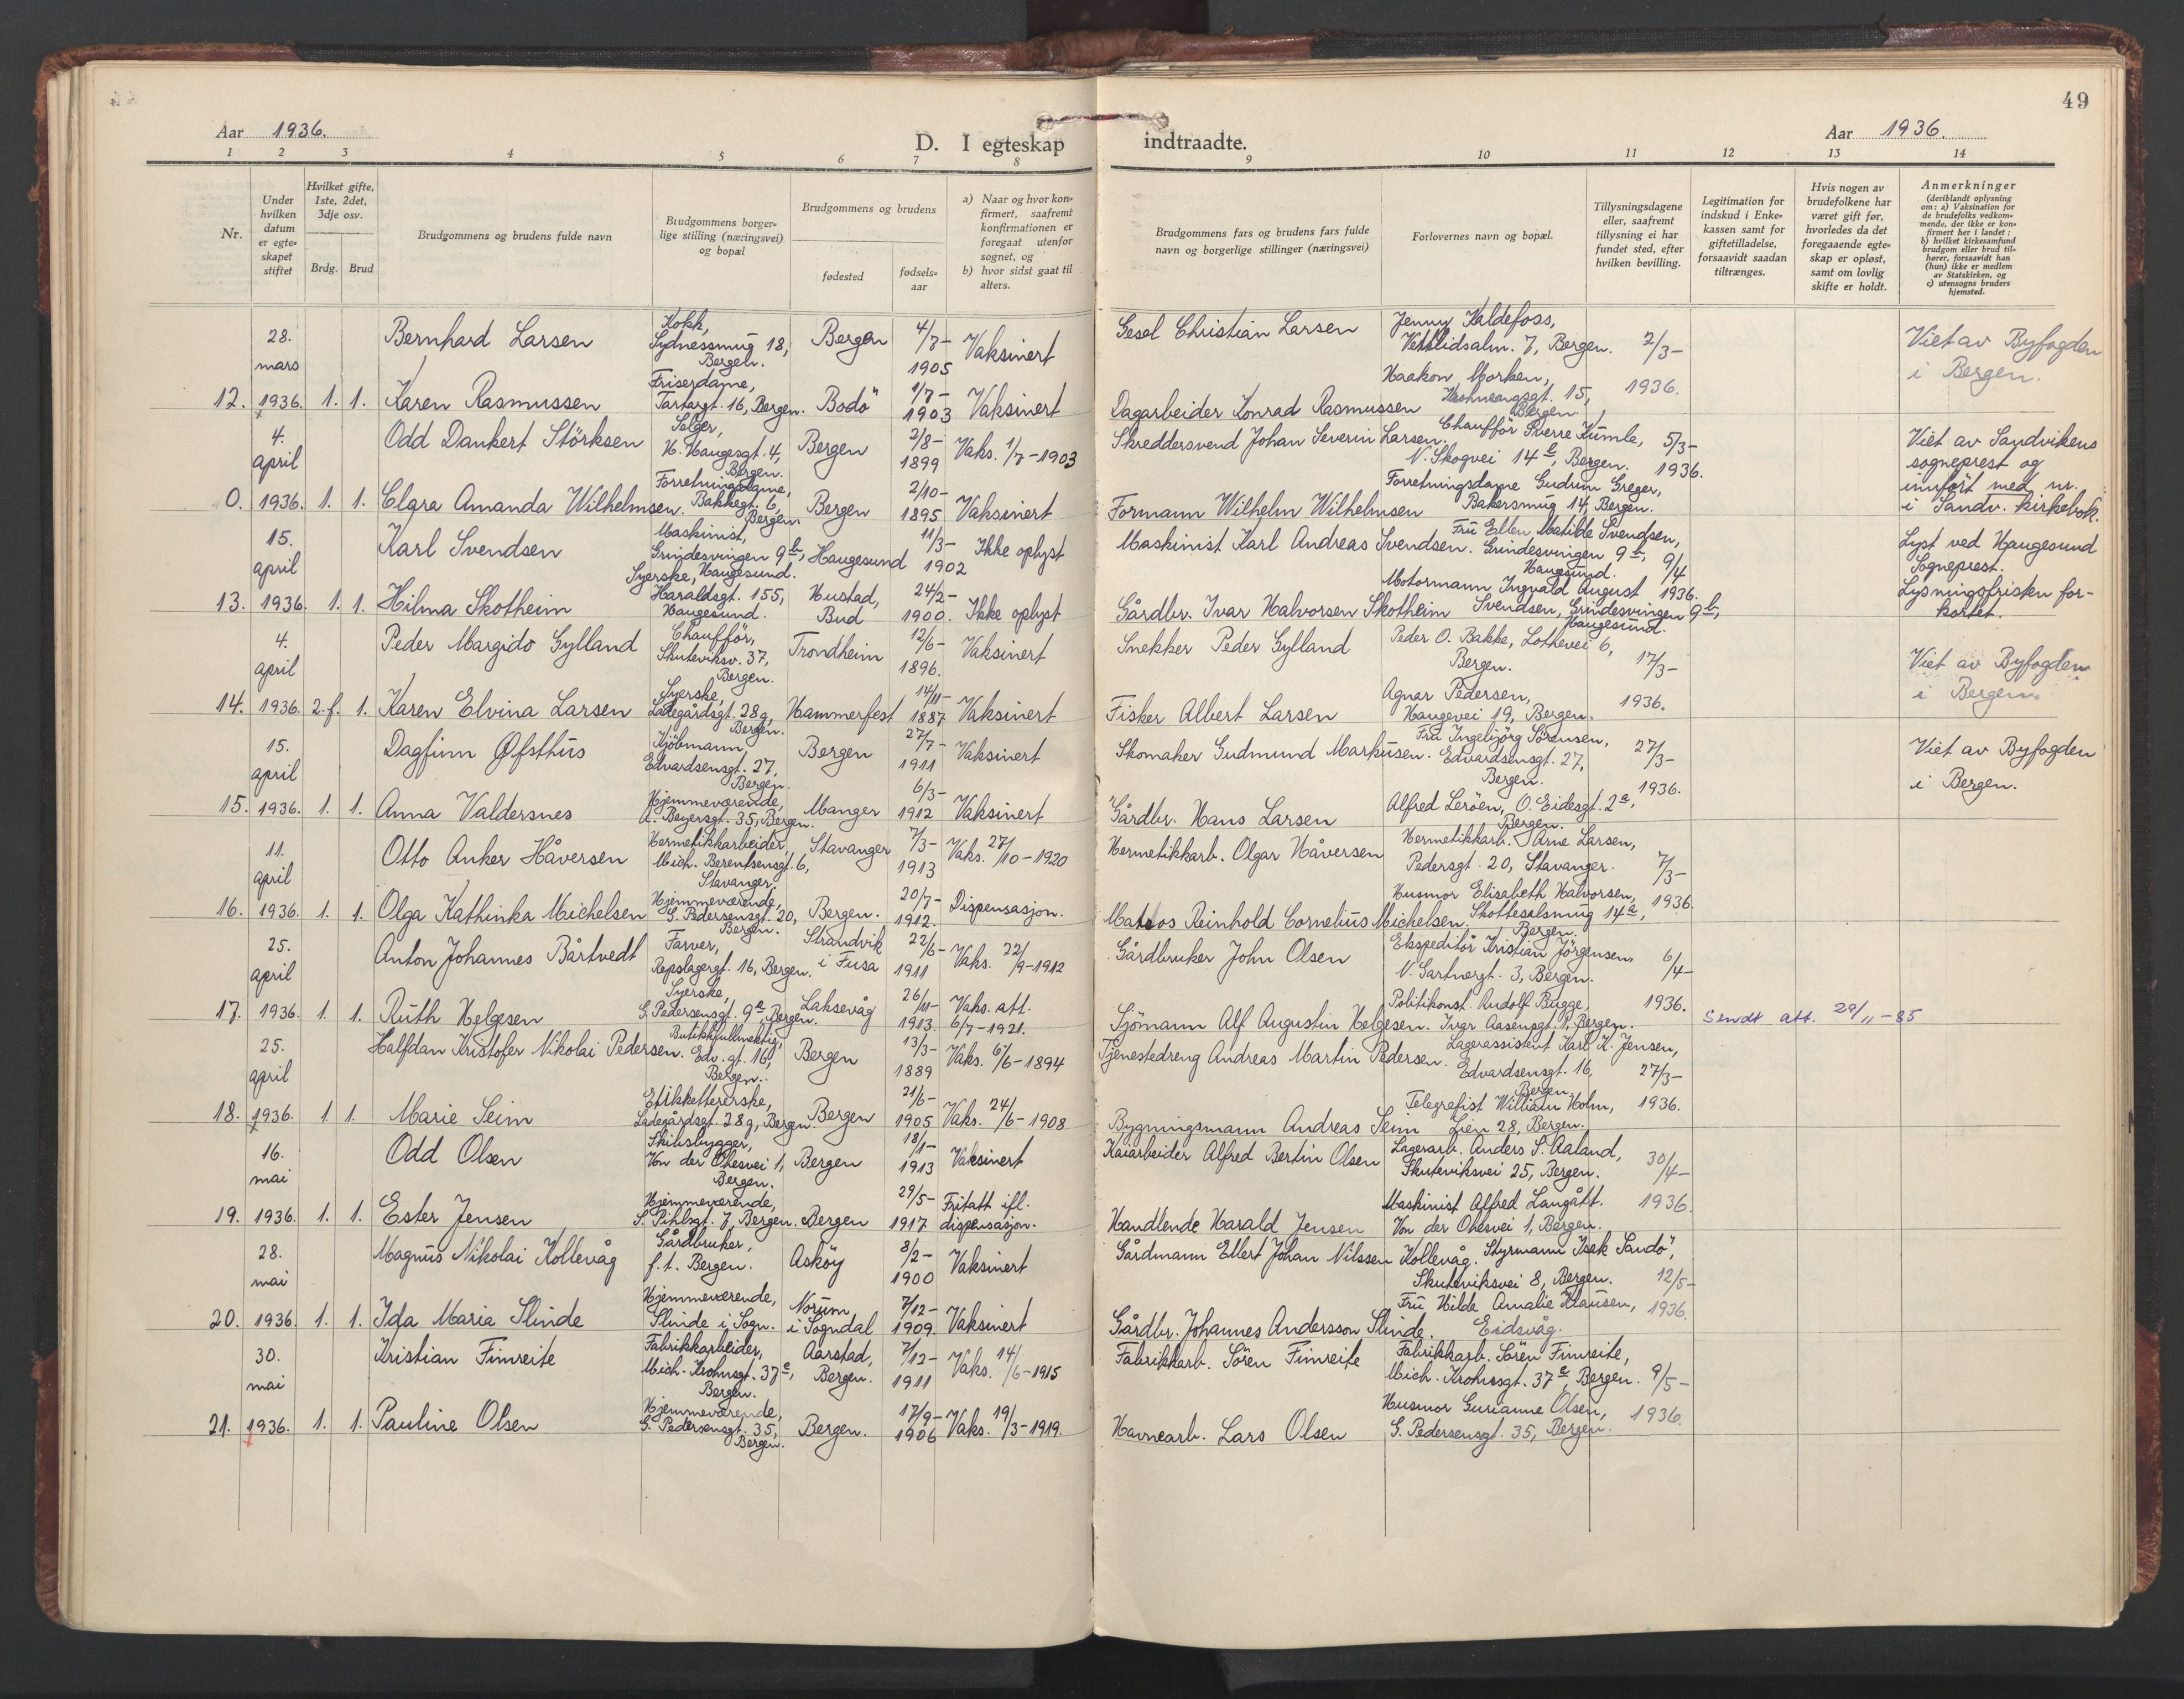 49
Aar 1936.
D. I egteskap indtraadte.
Aar 1936.
1 2 3 4 5 6 7 8 9 10 11 12 13 14
Nr.
Under hvilken datum er egte-skapet stiftet
Hvilket gifte, 1ste, 2det, 3dje osv.
Brdg. Brud
Brudgommens og brudens fulde navn
Brudgommens borger-lige stilling (næringsvei) og bopæl
Brudgommens og brudens
fødested
fødsels-aar
a) Naar og hvor kon-firmert, saafremt konfirmationen er foregaat utenfor sognet, og
b) hvor sidst gaat til alters.
Brudgommens fars og brudens fars fulde navn og borgerlige stillinger (næringsvei)
Forlovernes navn og bopæl.
Tillysningsdagene eller, saafremt tillysning ei har fundet sted, efter hvilken bevilling.
Legitimation for indskud i Enke-kassen samt for giftetilladelse, forsaavidt saadan tiltrænges.
Hvis nogen av brudefolkene har været gift før, hvorledes da det foregaaende egte-skap er opløst, samt om lovlig skifte er holdt.
Anmerkninger (deriblandt oplysning om: a) Vaksination for de brudefolks vedkom-mende, der ikke er kon-firmert her i landet; b) hvilket kirkesamfund brudgom eller brud til-hører, forsaavidt han (hun) ikke er medlem av Statskirken, og c) utensogns bruders hjemsted.
12. 28. mars 1936. 1. 1.
Bernhard Larsen
Kokk, Sydnessmug 18, Bergen.
Bergen 4/7-1905 Vaksinert
Gesel Christian Larsen
Jenny Kaldefoss, Vetrlidsalm. 7, Bergen.
2/3-1936.
Viet av Byfogden i Bergen.
Karen Rasmussen
Friserdame, Tartargt. 16, Bergen.
Bodö 1/7-1903 Vaksinert
Dagarbeider Konrad Rasmussen
Haakon Morken, 15, Bergen.
0. 4. april 1936. 1. 1.
Odd Dankert Störksen
Selger, H. Haugesgt. 4, Bergen.
Bergen 2/8-1899 Vaks. 1/7-1903
Skreddersvend Johan Severin Larsen.
Chaufför Sverre Kumle, N. Skogvei 14 b, Bergen.
5/3-1936.
Viet av Sandvikens sogneprest og innfört med nr. i Sandv. kirkebok.
Clara Amanda Wilhelmsen.
Forretningsdame, Bakkegt. 6, Bergen.
Bergen 2/10-1895 Vaksinert
Formann Wilhelm Wilhelmsen
Forretningsdame Gudrun Greger, Bakersmug 14, Bergen.
13. 15. april 1936. 1. 1.
Karl Svendsen
Maskinist, Grindesvingen 9 b, Haugesund.
Haugesund 11/3-1902 Ikke oplyst
Maskinist Karl Andreas Svendsen.
Fru Ellen Matilde Svendsen, Grindesvingen 9 b, Haugesund.
9/4 1936.
Lyst ved Haugesund Sogneprest. Lysningsfristen for-kortet.
Hilma Skotheim
Syerske, Haraldsgt. 155, Haugesund.
Hustad, Bud 24/2-1900. Ikke oplyst
Gårdbr. Ivar Halvorsen Skotheim
Motormann Ingvald August Svendsen, Grindesvingen 9 b, Haugesund.
14. 4. april 1936. 2.f. 1.
Peder Margido Gylland
Chaufför, Skuteviksv. 37, Bergen.
Trondheim 12/6-1896. Vaksinert
Snekker Peder Gylland
Peder O. Bakke, Lothevei 6, Bergen.
17/3-1936.
Viet av Byfogden i Bergen.
Karen Elvina Larsen
Syerske, Ladegårdsgt. 28g, Bergen.
Hammerfest 14/11-1887 Vaksinert
Fisker Albert Larsen
Agnar Pedersen, Haugevei 19, Bergen.
15. 15. april 1936. 1. 1.
Dagfinn Øfsthus
Kjöbmann, Edvardsensgt. 27, Bergen.
Bergen 27/7-1911 Vaksinert
Skomaker Gudmund Markusen.
Fru Ingebjörg Sörensen, Edvardsensgt. 27, Bergen.
27/3-1936.
Viet av Byfogden i Bergen.
Anna Valdersnes
Hjemmeværende, A. Beyersgt. 35, Bergen.
Manger 6/3-1912 Vaksinert
Gårdbr. Hans Larsen
Alfred Leröen, O. Eidesgt. 2 a, Bergen.
16. 11. april 1936. 1. 1.
Otto Anker Håversen
Hermetikkarbeider, Mich. Berentsensgt. 6, Stavanger.
Stavanger 7/3-1913 Vaks. 27/10-1920
Hermetikkarb. Olgar Håversen
Hermetikkarb. Arne Larsen, Pedersgt. 20, Stavanger.
7/3-1936.
Olga Kathinka Michelsen
Hjemmeværende, G. Pedersensgt. 20, Bergen.
Bergen. 20/7-1912. Dispensasjon.
Matros Reinhold Cornelius Michelsen.
Husmor Elisabeth Halvorsen, Skottesalsmug 14 a, Bergen.
17. 25. april 1936. 1. 1.
Anton Johannes Bårtvedt
Farver, Repslagergt. 16, Bergen.
Strandvik i Fusa 22/6-1911 Vaks. 22/9-1912
Gårdbruker John Olsen
Ekspeditör Kristian Jörgensen, N. Gartnergt. 3, Bergen.
6/4-1936.
Ruth Helgesen
Syerske, G. Pedersensgt. 9 a, Bergen.
Laksevåg 26/11-1913. Vaks. att. 6/7-1921.
Sjömann Alf Augustin Helgesen.
Politikonst. Rudolf Bugge, Ivar Aasensgt. 1, Bergen.
Sendt att. 29/11-85
18. 25. april 1936. 1 1.
Halfdan Kristofer Nikolai Pedersen.
Butikkfullmektig, Edv. gt. 16, Bergen.
Bergen 13/3-1889 Vaks. 6/6-1894
Tjenestedreng Andreas Martin Pedersen.
Lagerassistent Karl K. Jensen, Edvardsensgt. 16, Bergen.
27/3-1936.
Marie Seim
Etikkettererske, Ladegårdsgt. 28g, Bergen.
Bergen 21/6-1905 Vaks. 24/6-1908
Bygningsmann Andreas Seim
Telegrafist William Holm, Lien 28, Bergen.
19. 16. mai 1936. 1. 1.
Odd Olsen
Skibsbygger, Von der Ohesvei 1, Bergen.
Bergen 18/1-1913 Vaksinert
Kaiarbeider Alfred Bertin Olsen
Lagerarb. Anders S. Aaland, Skuteviksvei 25, Bergen.
30/4-1936.
Ester Jensen
Hjemmeværende, S. Pihlsgt. 7, Bergen.
Bergen 29/5-1917 Fritatt ifl. dispensasjon.
Handlende Harald Jensen
Maskinist Alfred Langått. Von der Ohesvei 1, Bergen.
20. 28. mai 1936. 1. 1.
Magnus Nikolai Kollevåg
Gårdbruker, f.t. Bergen.
Asköy 8/2-1900 Vaksinert
Gårdmann Ellert Johan Nilssen Kollevåg.
Styrmann Isak Sandö, Skuteviksvei 8, Bergen.
12/5-1936.
Ida Maria Slinde
Hjemmeværende, Slinde i Sogn.
Norum i Sogndal 7/12-1909. Vaksinert
Gårdbr. Johannes Andersson Slinde.
Fru Hilda Amalie Klausen, Eidsvåg.
21. 30. mai 1936. 1. 1.
Kristian Fimreite
Fabrikkarbeider, Mich. Krohnsgt. 37 a, Bergen.
Aarstad, Bergen. 7/12-1911 Vaks. 14/6-1915
Fabrikkarb. Sören Fimreite
Fabrikkarb. Sören Fimreite, Mich. Krohnsgt. 37 a, Bergen.
9/5-1936.
Pauline Olsen
Hjemmeværende, G. Pedersensgt. 35, Bergen.
Bergen. 17/9-1906 Vaks. 19/3-1919.
Havnearb. Lars Olsen
Husmor Gurianne Olsen, G. Pedersensgt. 35, Bergen.